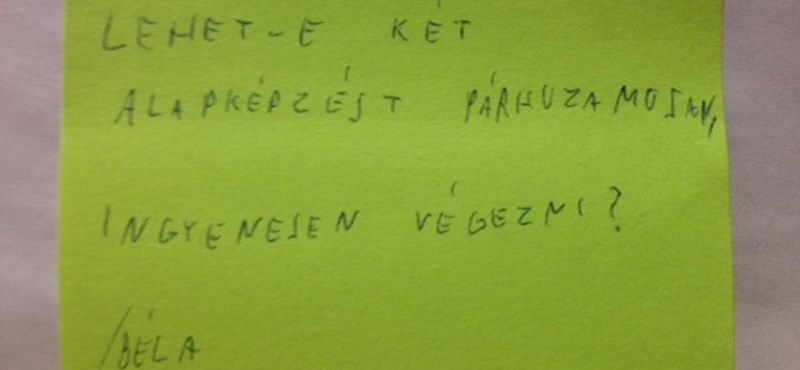 LEHET-E KÉT
ALAPKÉPZÉST PÁRHUZAMOSAN,
INGYENESEN VÉGEZNI?
/BÉLA